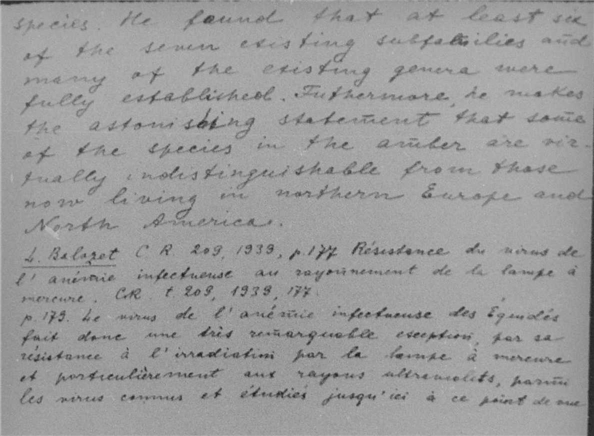 species. He found that at least six
of the seven existing subfamilies and
many of the existing genera were
fully established. Futhermore, he makes
the astonishing statement that some
of the species in the amber are vir-
tually indistinguishable from those
now living in northern Europe and
North America.
L. Balozet C. R. 209, 1939, p. 177 Résistance du virus de
l'anémie infectueuse au rayonnement de la lampe à
mercure. C.R. t 209, 1939, 177.
p. 179. Le virus de l'anémie infectueuse des Equidés
fait donc une très remarquable exception, par sa
résistance à l'irradiation par la lampe à mercure
et particulièrement aux rayons ultraviolets, parmi
les virus connus et étudiés jusqu'ici à ce point de vue